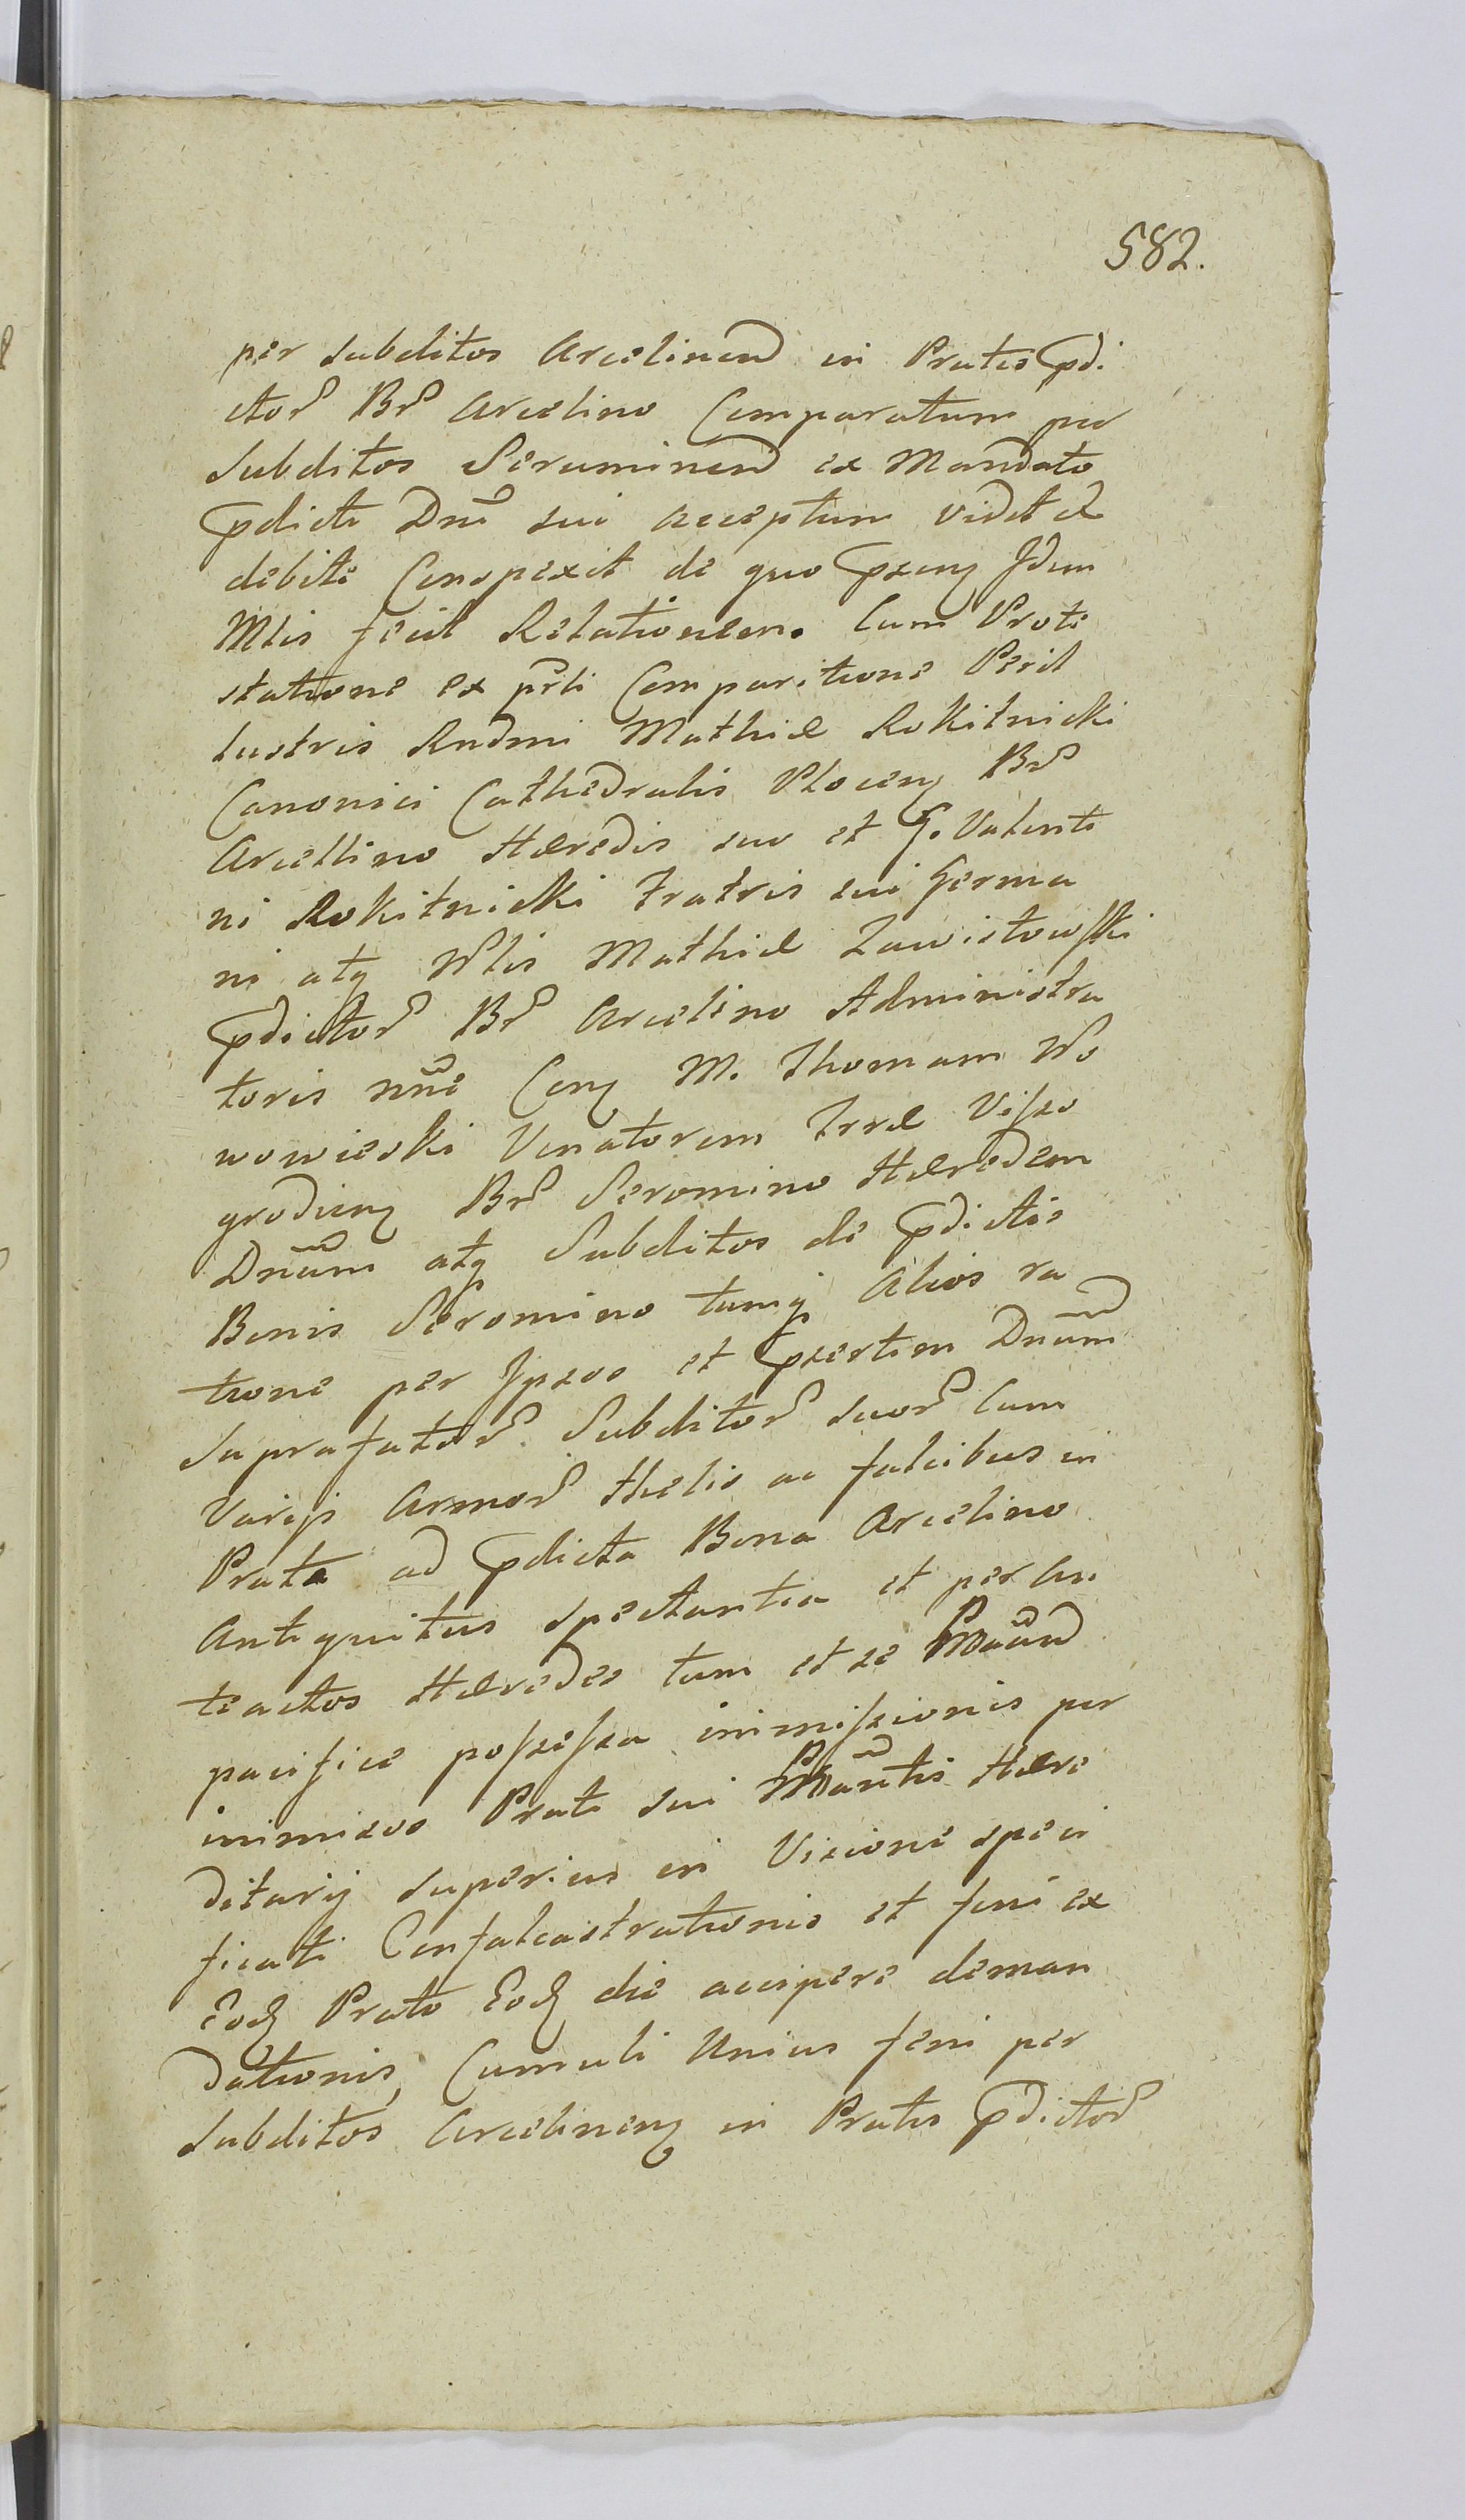 582.
per Subditos Arcelinen in Pratis pdi
ctor Br Arcelino Comparatum per
Subditos Seruminen ex Mandato
pdicti Dni sui acceptum vidit et
debite Conspexit de quo psens Idem
Mtis fecit Relationem. Cum Prote
statione ex prti Comparitione Peril
lustris Rndmi Mathiæ Rokitnicki
Canonici Cathedralis Plocens Br
Arcellino Hæredis suo et G. Valenti
ni Rokitnicki Fratris sui Germa
ni atq Nlis Mathiæ Zawistowski
pdictor Br Arcelino Administra
toris nne Cons M. Thomam No
wowieski Venatorem Trræ Viszo
grodiens Br Seromino Hæredem
Dnum atq Subditos de pdictis
Bonis Seromino tumq Alios ra
tione per Ipsos et psertim Dnum
Suprafator Subditor suor Cum
Varijs Armor thelis ac falcibus in
Prata ad pdicta Bona Arcelino
Antiquitus spectantia et per An
teactos Hæredes tum et se
pacifice possessa immissionis per
immisos Prati sui Hære
ditarij superius in Visione speci
ficati Confalcastrationis et feni ex
Eod Prato Eod die accipere deman
dationis, Cumuli Unius feni per
Subditos Arcelinens in Pratis pdictor